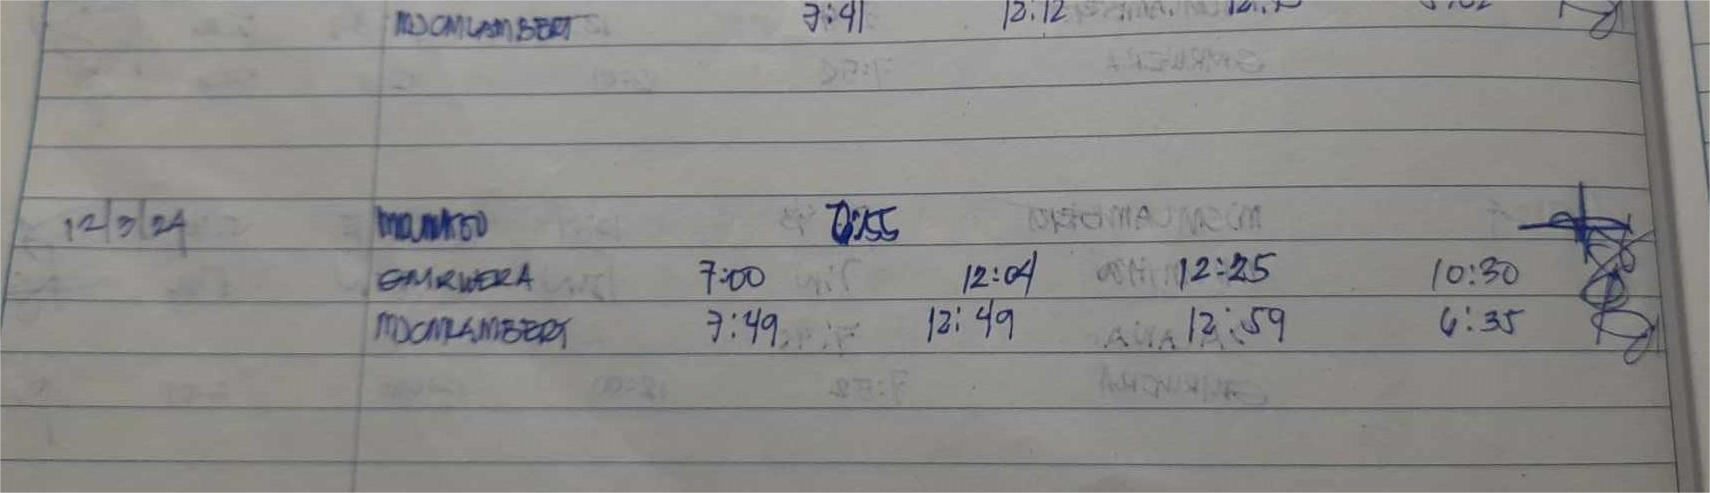 MJCMLAMBERT 7:41 12:12
12/3/24 7:55
GMRWERA 7:00 12:04 12:25 10:30
MJCMLAMBERT 7:49 12:49 12:59 6:35